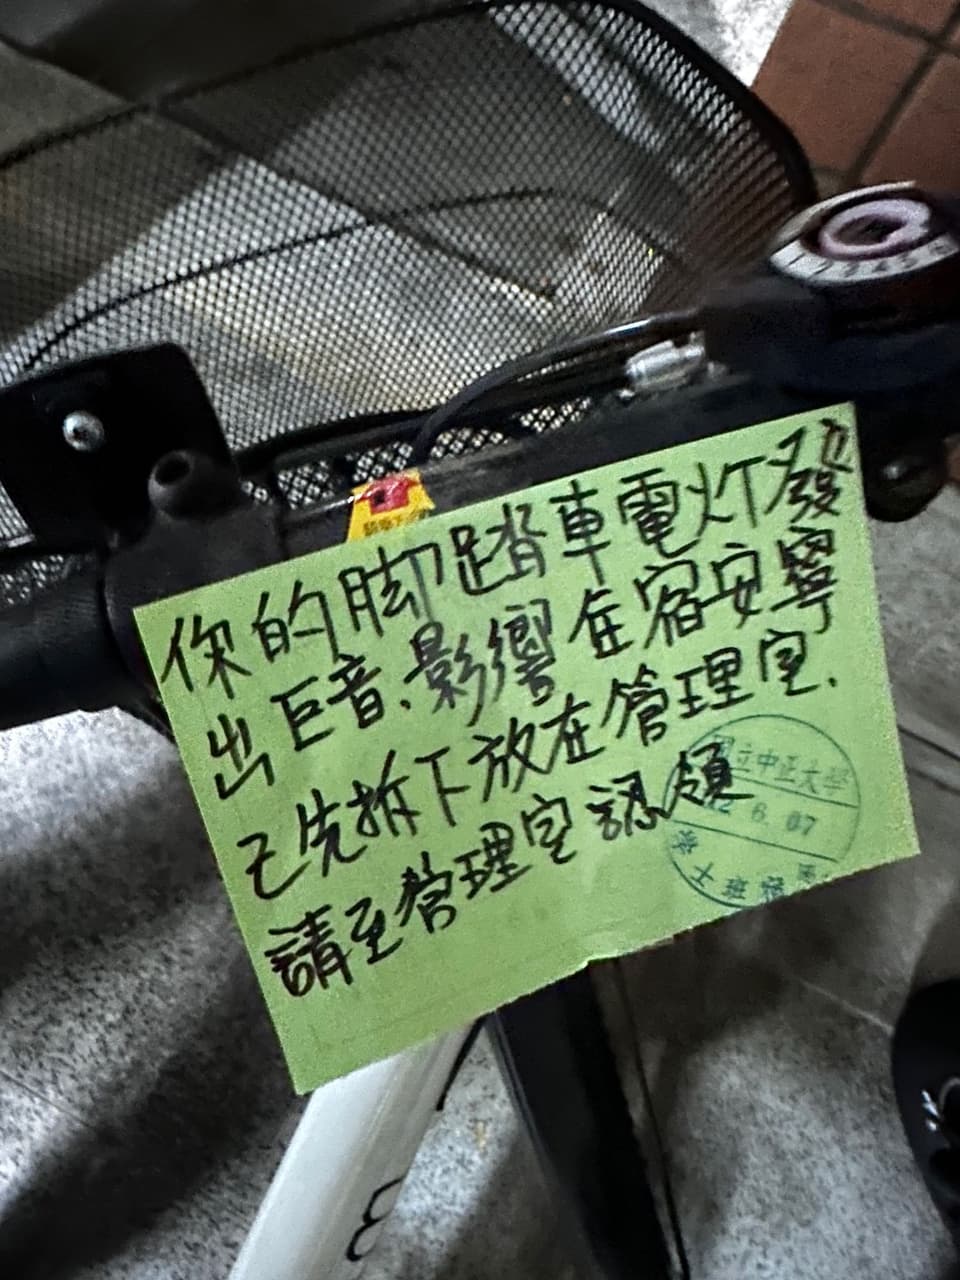 你的脚踏車電灯發
出巨音.影響住宿安寧
已先拆下放在管理室.
請至管理室認領
國立中正大學
6.07